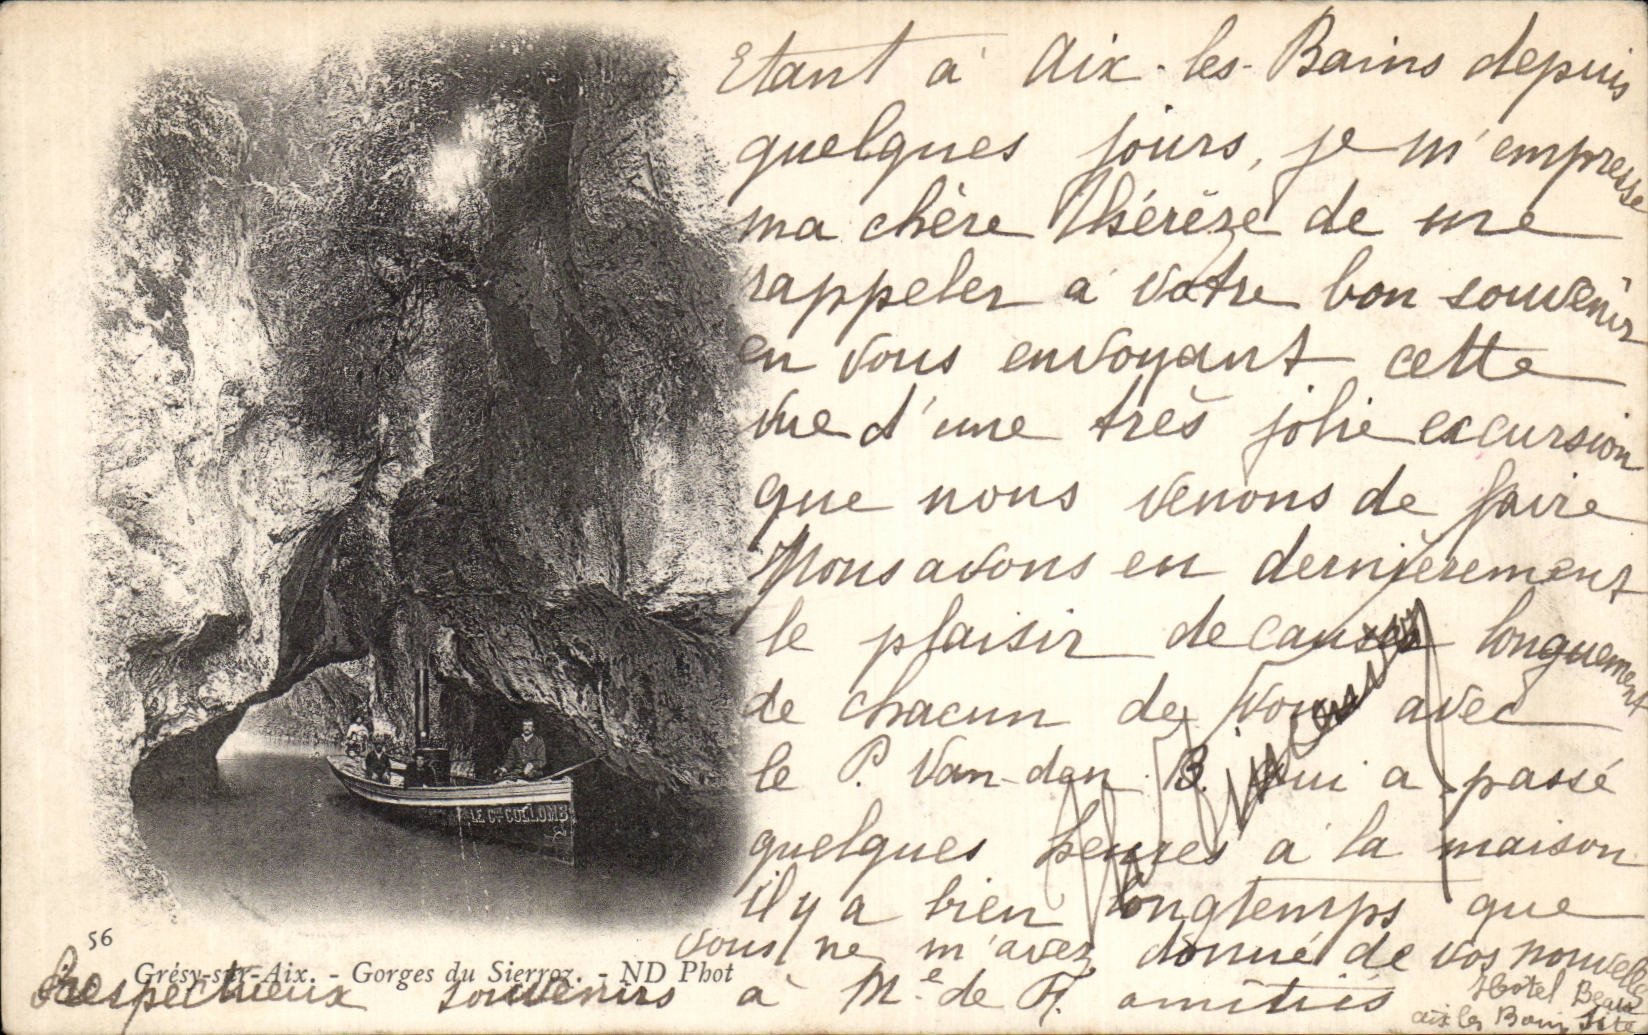 Etant à Aix-les-Bains depuis
quelques jours, je m'empresse
ma chère Thérèze de me
rappeler à votre bon souvenir
en vous envoyant cette
vue d'une très jolie excursion
que nous venons de faire
Nous avons en dernièrement
le plaisir de causer longuement
de chacun de vous avec
le P. Van-den B. qui a passé
quelques heures à la maison
il y a bien longtemps que
vous ne m'avez donné de vos nouvelles
Respectueux souvenirs à M.e de F. amitiés
Hôtel Beau
Site
aix les Bains
LE Cte COLLOMB
56
Grésy-sur-Aix. - Gorges du Sierroz. - ND Phot